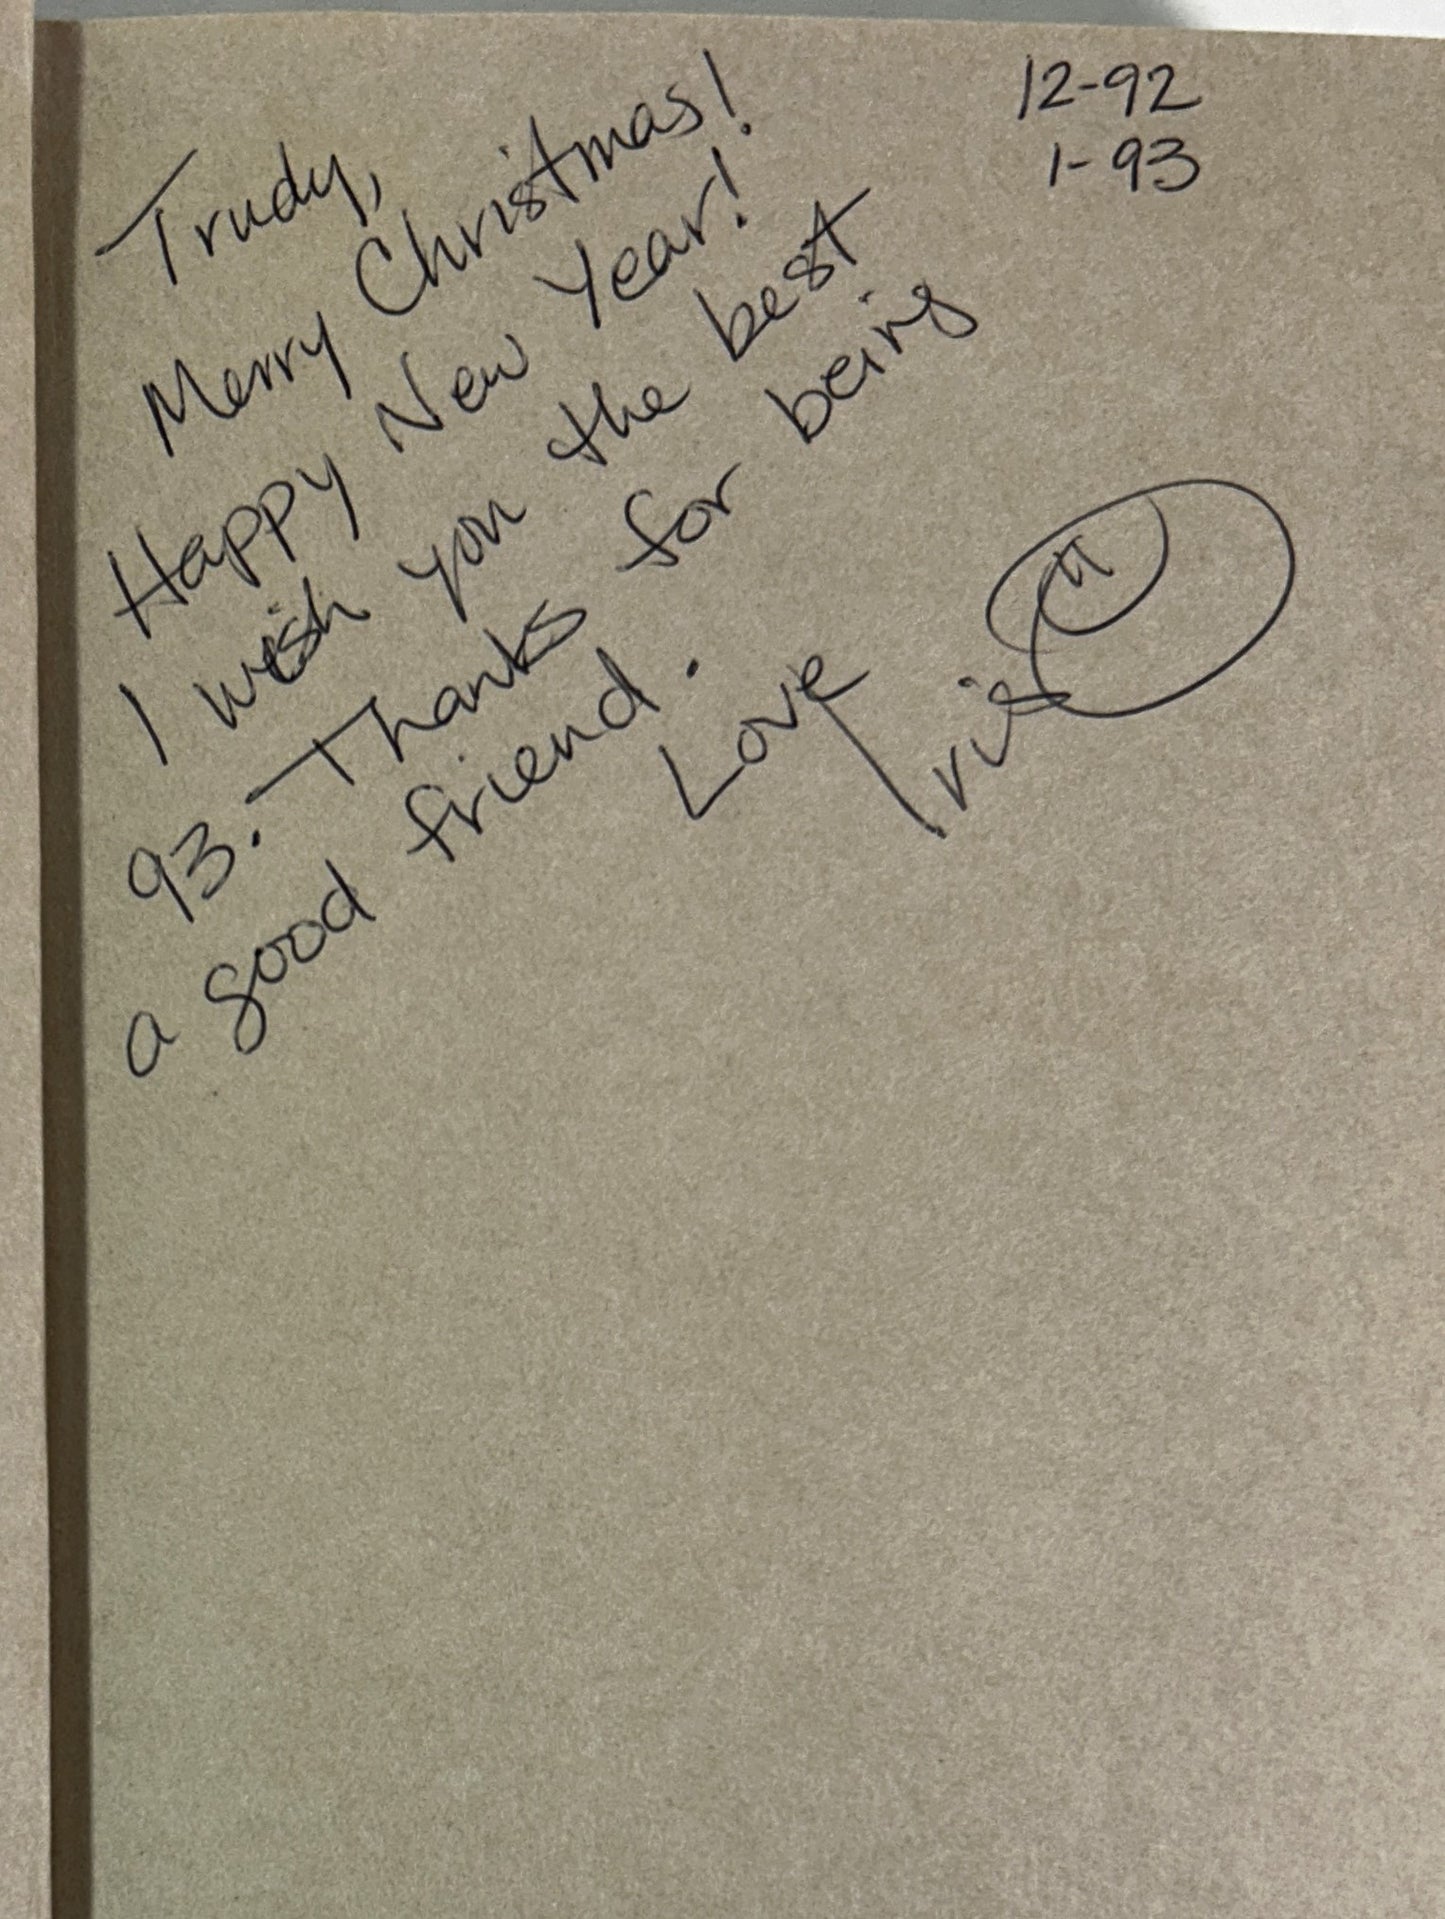 12-92
1-93
Trudy,
Merry Christmas!
Happy New Year!
I wish you the best
93. Thanks for being
a good friend.
Love
Iris